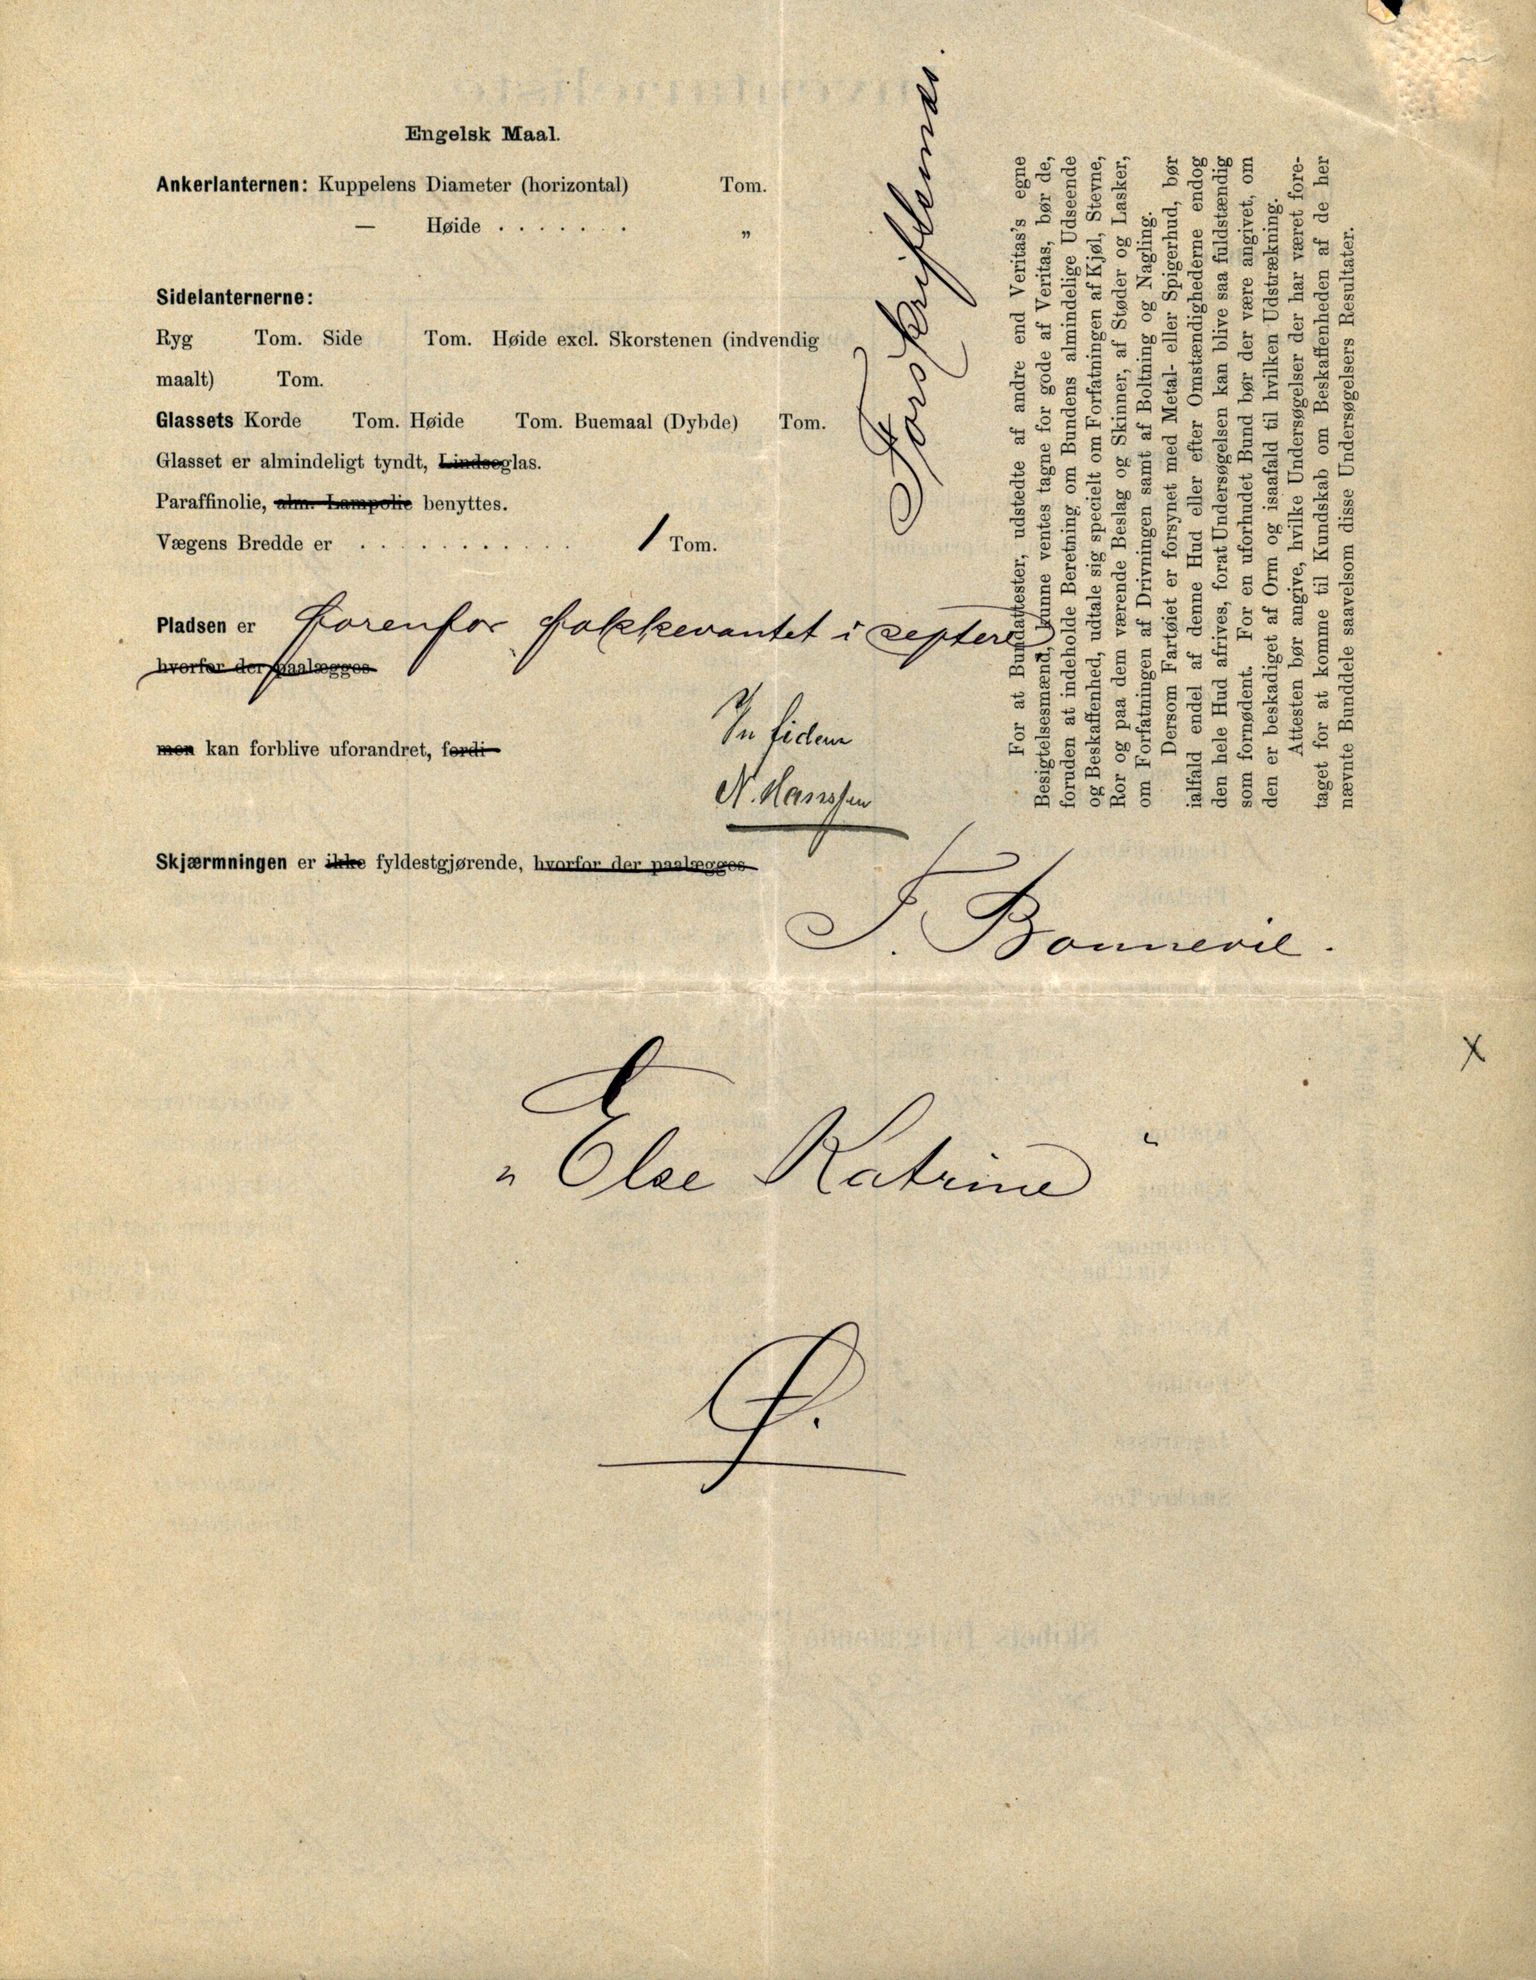 Engelsk Maal.
Ankerlanternen: Kuppelens Diameter (horizontal) Tom.
— Høide . . . . . . . „
Sidelanternerne:
Ryg Tom. Side Tom. Høide excl. Skorstenen (indvendig
maalt) Tom.
Glassets Korde Tom. Høide Tom. Buemaal (Dybde) Tom.
Glasset er almindeligt tyndt, Lindseglas.
Paraffinolie, alm. Lampolie benyttes.
Vægens Bredde er . . . . . . . . . . . 1 Tom.
Pladsen er forenfor fokkevantet i septere
hvorfor der paalægges
men kan forblive uforandret, fordi
Skjærmningen er ikke fyldestgjørende, hvorfor der paalægges
In fidem
N. Hanssen
F. Bonnevie.
Forskriftsmæs.
For at Bundattester, udstedte af andre end Veritas's egne
Besigtelsesmænd, kunne ventes tagne for gode af Veritas, bør de,
foruden at indeholde Beretning om Bundens almindelige Udseende
og Beskaffenhed, udtale sig specielt om Forfatningen af Kjøl, Stevne,
Ror og paa dem værende Beslag og Skinner, af Støder og Lasker,
om Forfatningen af Drivningen samt af Boltning og Nagling.
Dersom Fartøiet er forsynet med Metal- eller Spigerhud, bør
ialfald endel af denne Hud eller efter Omstændighederne endog
den hele Hud afrives, forat Undersøgelsen kan blive saa fuldstændig
som fornødent. For en uforhudet Bund bør der være angivet, om
den er beskadiget af Orm og isaafald til hvilken Udstrækning.
Attesten bør angive, hvilke Undersøgelser der har været fore-
taget for at komme til Kundskab om Beskaffenheden af de her
nævnte Bunddele saavelsom disse Undersøgelsers Resultater.
x
„Else Katrine"